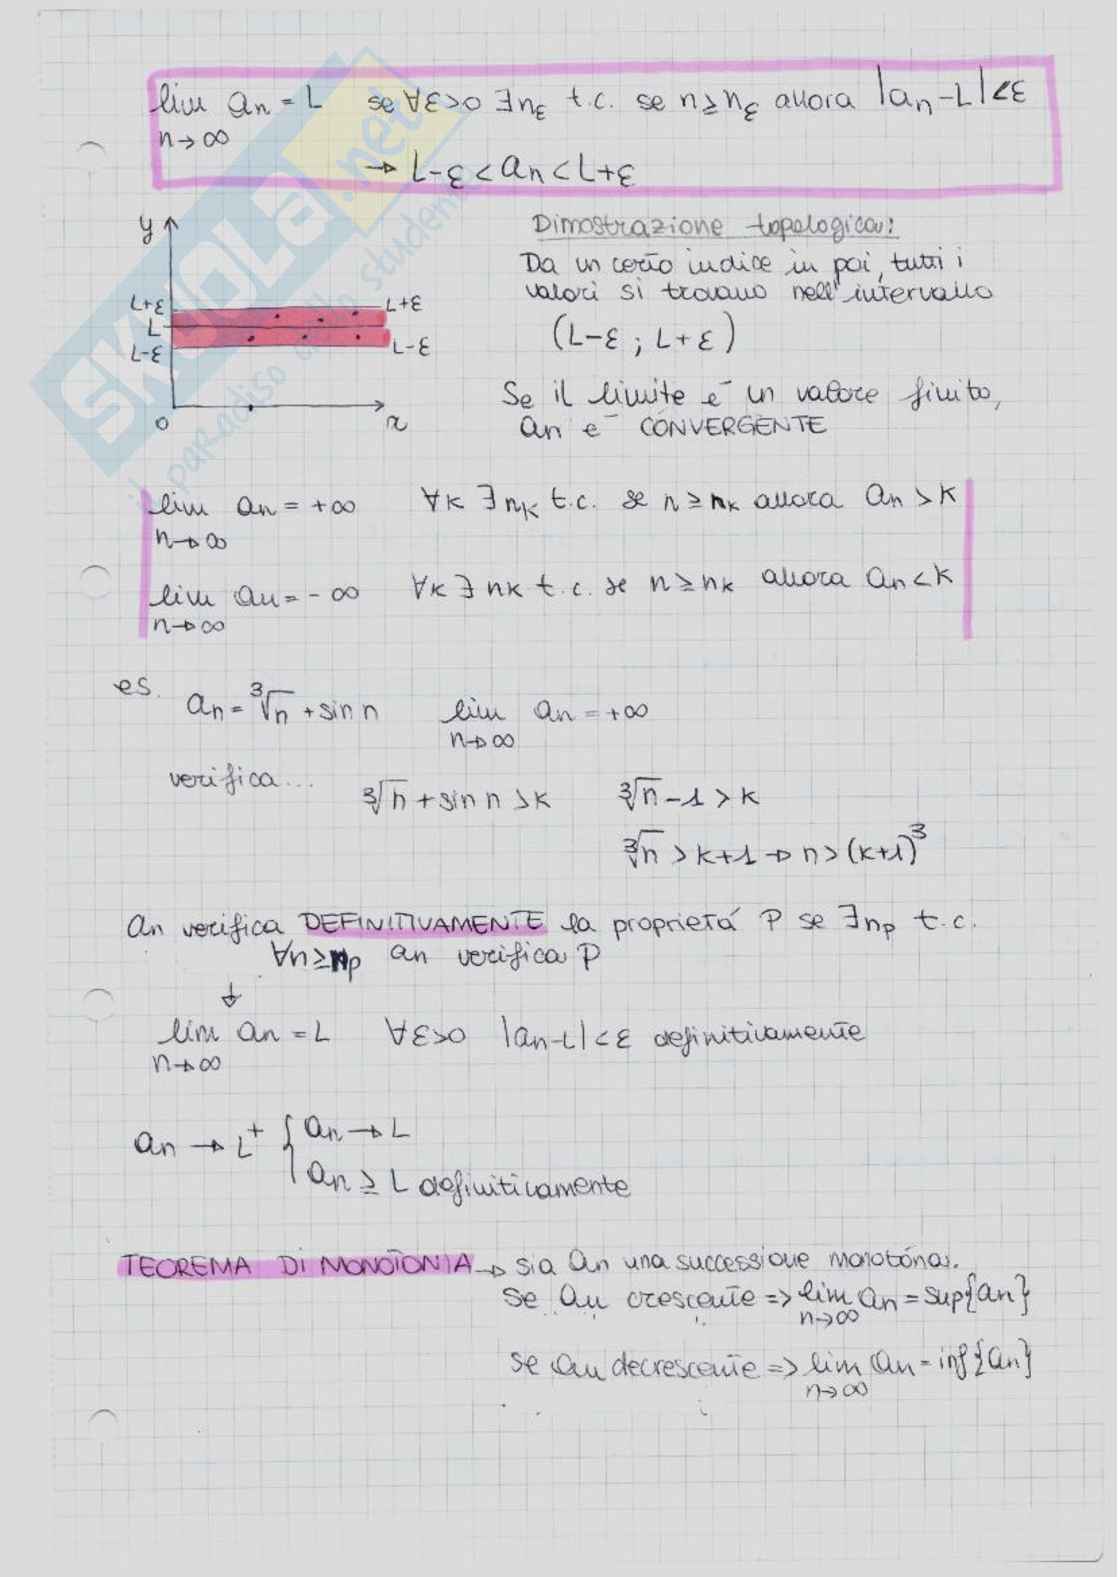 lim an = L se ∀ε>0 ∃nε t.c. se n≥nε allora |an-L|<ε
n→∞
→ L-ε<an<L+ε
SKUOLa.net
il paradiso dello studente
y
Dimostrazione topologica:
Da un certo indice in poi, tutti i
valori si trovano nell'intervallo
L+ε L+ε
L
L-ε L-ε
(L-ε ; L+ε)
0 x
Se il limite è un valore finito,
an è CONVERGENTE
lim an = +∞ ∀K ∃nK t.c. se n≥nK allora an>K
n→∞
lim an = -∞ ∀K ∃nK t.c. se n≥nK allora an<K
n→∞
es. an = ³√n + sin n lim an = +∞
n→∞
verifica... ³√n + sin n > K ³√n - 1 > K
³√n > K+1 → n > (K+1)³
an verifica DEFINITIVAMENTE la proprietá P se ∃np t.c.
∀n≥np an verifica P
↓
lim an = L ∀ε>0 |an-L|<ε definitivamente
n→∞
an → L⁺ { an → L
an ≥ L definitivamente
TEOREMA DI MONOTONIA → sia an una successione monotóna.
se an crescente => lim an = sup{an}
n→∞
se an decrescente => lim an = inf{an}
n→∞